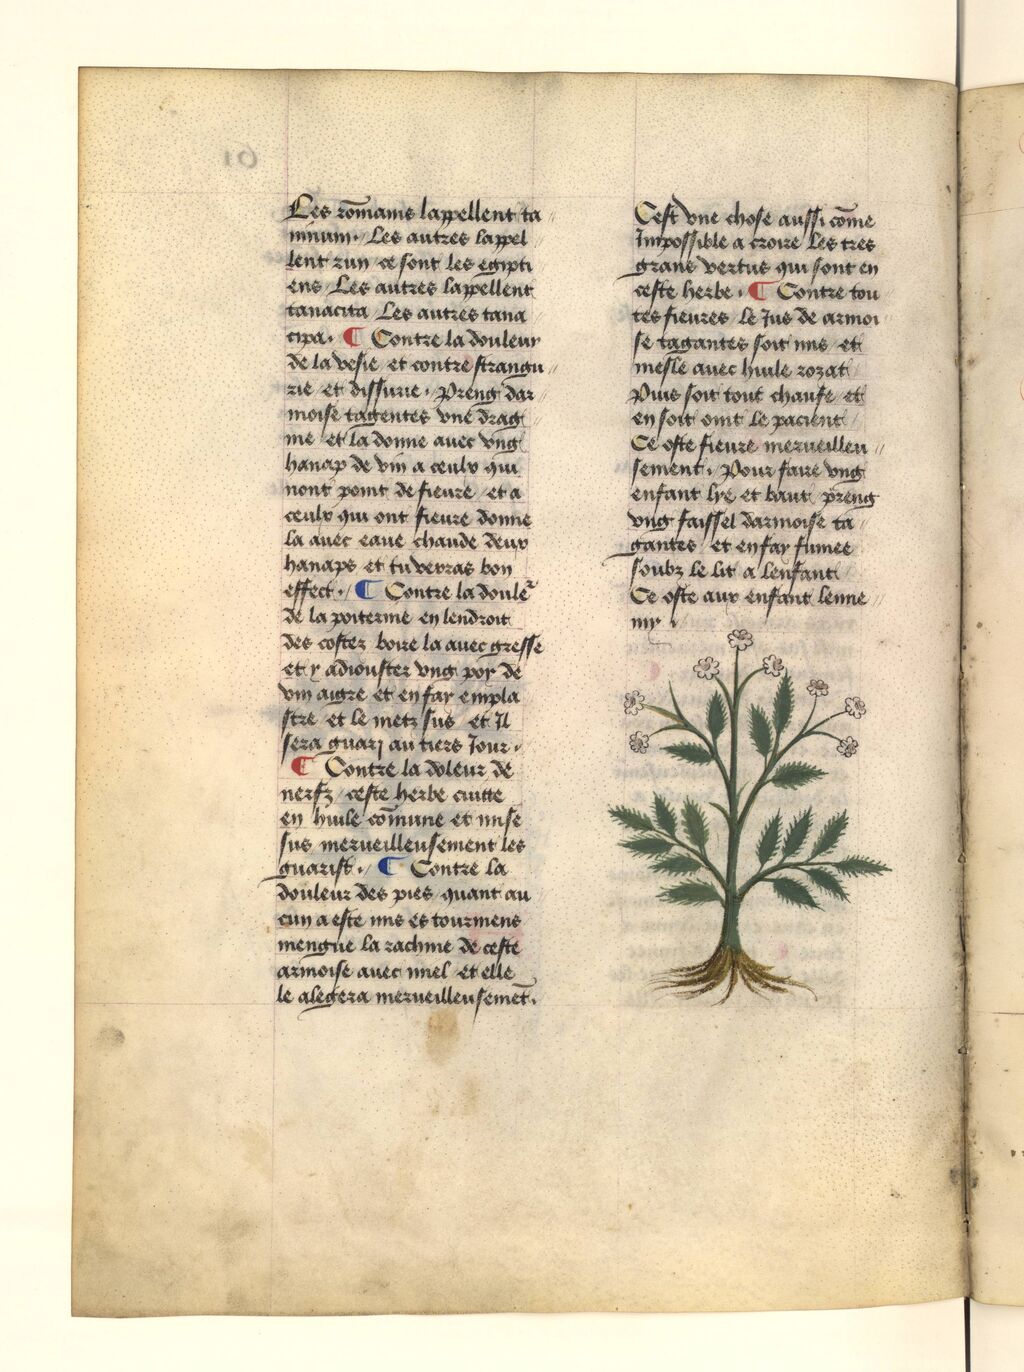 Les rōmains lappellent ta
minum. Les autres lappel
lent zun ce sont les egipti
ens Les autres lappellent
tanacita Les autres tana
cipa. ¶ Contre la douleur
de la vesie et contre strangu
rie et dissurie. Preng dar
moise tagentes vne drag
me et la donne auec vng
hanap de vin a ceulx qui
nont point de fieure et a
ceulx qui ont fieure donne
la auec eaue chaude deux
hanaps et tu verras bon
effect. ¶ Contre la doule͛
de la poiterine en lendroit
des costez boire la auec gresse
et y adiouster vng poy de
vin aigre et en fay empla
stre et le metz sus et Il
sera guarj au tiers Jour.
¶ Contre la doleur de
nerfz ceste herbe cuitte
en huile cōmune et mise
sus merueilleusement les
guarist. ¶ Contre la
douleur des pies quant au
cun a este mis es tourmens
mengue la rachine de ceste
armoise auec miel et elle
le alegera merueilleusemēt.
Cest vne chose aussi cōme
Impossible a croire Les tres
grans vertus qui sont en
ceste herbe. ¶ Contre tou
tes fieures le Jus de armoi
se tagantes soit mis et
mesle auec huile rozat
Puis soit tout chaufe et
en soit oint le pacient
Ce oste fieure merueilleu
sement. Pour faire vng
enfant lye et baut preng
vng faissel darmoise ta
gantes et en fay fumee
soubz le lit a lenfant
Ce oste aux enfant lenne
my.